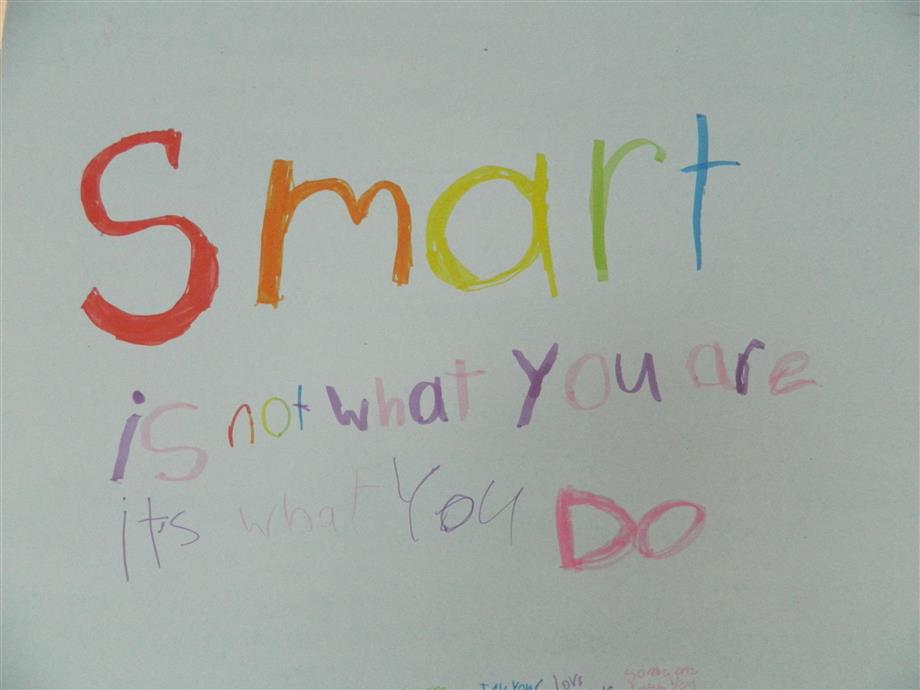 Smart
is not what you are
it's what You DO
love